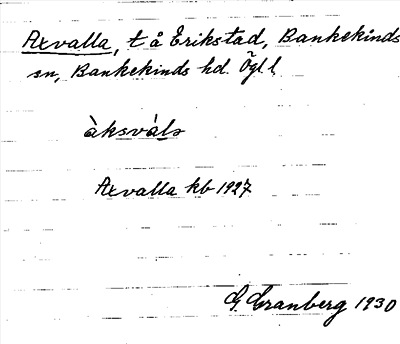 Axvalla, t å Erikstad, Bankekinds
sn, Bankekinds hd. Ögl l
àksválₔ
Axvalla kb 1927
G. Granberg 1930